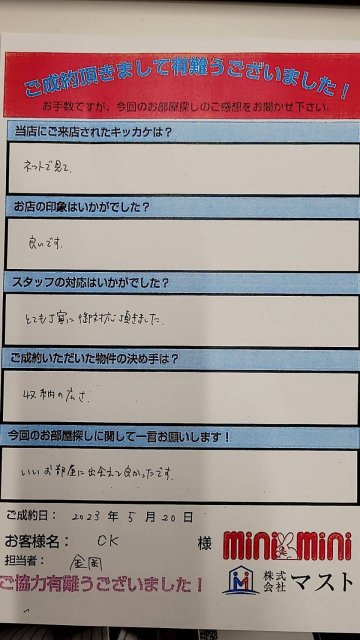 ご成約頂きまして有難うございました！
お手数ですが、今回のお部屋探しのご感想をお聞かせ下さい。
当店にご来店されたキッカケは？
ネットで見て、
お店の印象はいかがでした？
良いです。
スタッフの対応はいかがでした？
とても丁寧に御対応頂きました。
ご成約いただいた物件の決め手は？
収納の広さ、
今回のお部屋探しに関して一言お願いします！
いいお部屋に出会えて良かったです。
ご成約日： 2023 年 5 月 20 日
お客様名： CK 様
担当者：
mini mini
株式会社 マスト
ご協力有難うございました！